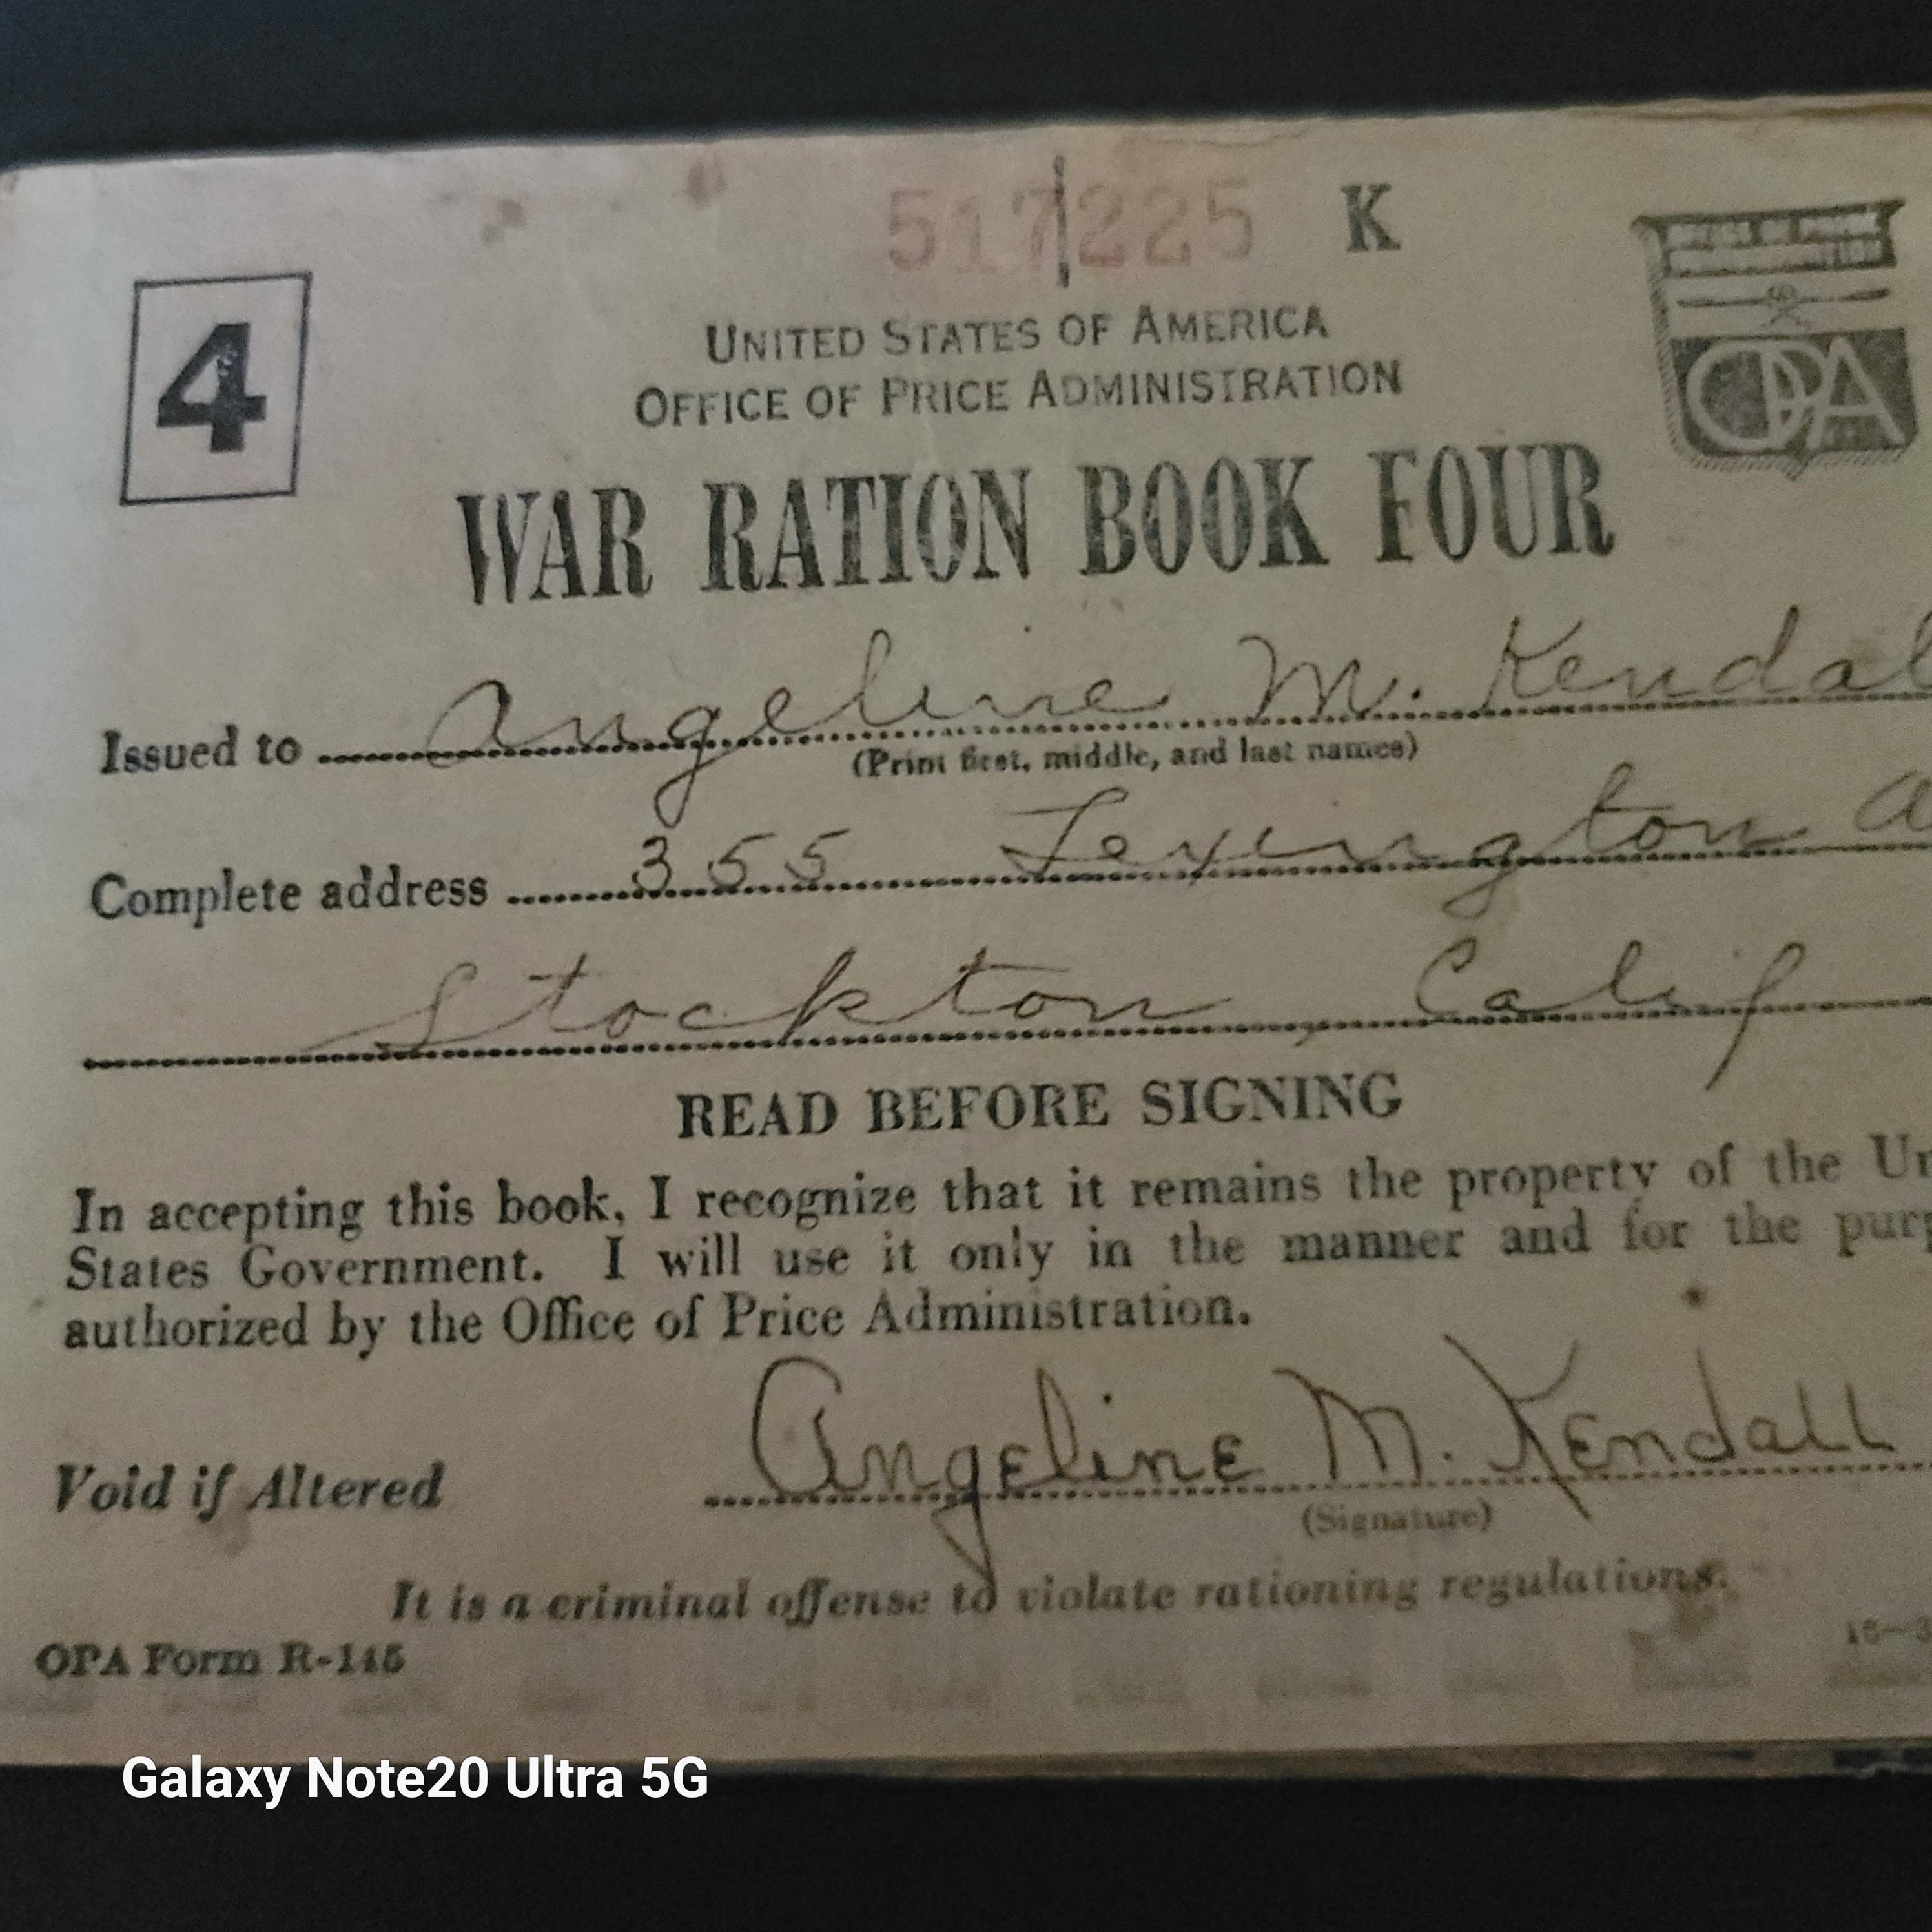 517225 K
4
OFFICE OF PRICE
ADMINISTRATION
OPA
UNITED STATES OF AMERICA
OFFICE OF PRICE ADMINISTRATION
WAR RATION BOOK FOUR
Issued to Angeline M. Kendal
(Print first, middle, and last names)
Complete address 355 Lexington A
Stockton, Calif
READ BEFORE SIGNING
In accepting this book, I recognize that it remains the property of the Un
States Government. I will use it only in the manner and for the purp
authorized by the Office of Price Administration.
Void if Altered Angeline M. Kendall
(Signature)
It is a criminal offense to violate rationing regulations.
OPA Form R-145
Galaxy Note20 Ultra 5G